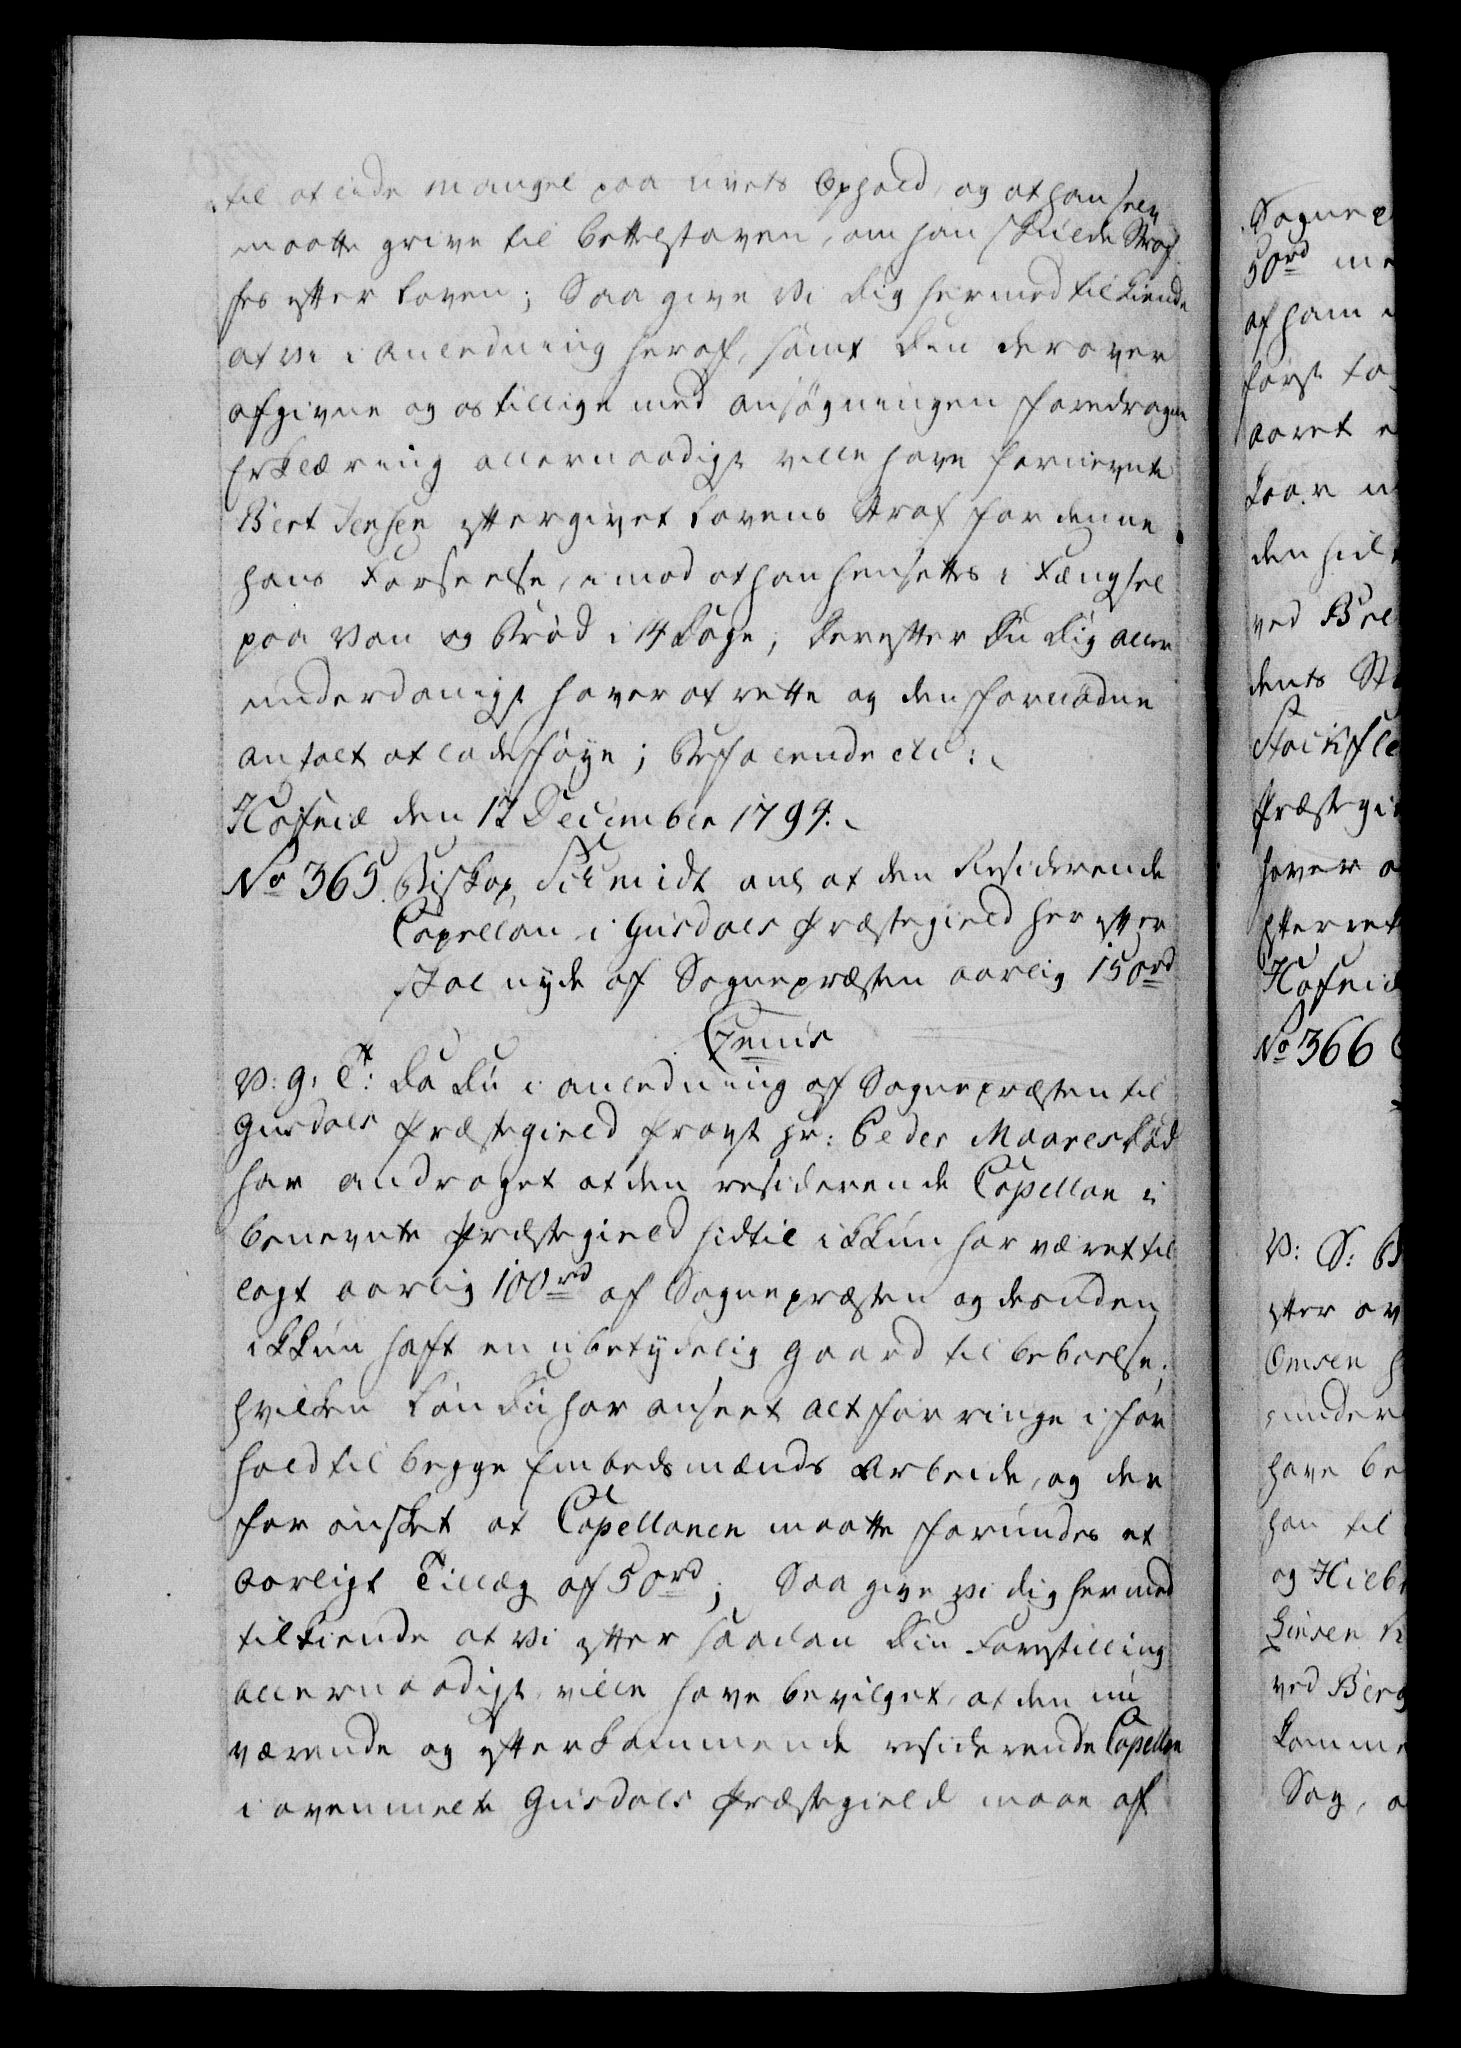 til at lide mangel paa livets Ophold, og at han selv
maatte grive til bettelstaven, om han skulde Straf-
fes efter Loven; Saa give Vi dig hermed tilkiende
at vi i anledning heraf, samt den derover
afgivne og os tillige med ansøgningen foredragne
Erklæring allernaadigst ville have fornevnte
Bert Jensen eftergivet Lovens Straf for denne
hans Forseelse, imod at han hensettes i Fængsel
paa Van og Brød i 14 Dage; derefter Du Dig aller
underdanigst haver at rette og den fornødne
anstalt at lade føye; Befalende etc:
Hafniæ den 12 December 1794.
No 365. Biskop Schmidt anl at den Residerende
Capellan i Gusdals Præstegield her efter
skal nyde af Sognepræsten aarlig 150rd
Genus
V: G: T: Da Du i anledning af Sognepræsten til
Gusdals Præstegield Provst Hr: Peder Maareskød
har andraget at den residerende Capellan i
benevnte Præstegield hidtil ikkun har været til
lagt aarlig 100rd af Sognepræsten og desuden
ikkun haft en ubetydelig gaard til beboelse;
hvilken Løn Du har anseet alt for ringe i for
hold til begge Embedsmænds Arbeide, og der
for ønsket at Capellanen maatte forundes et
aarligt Tillæg af 50rd; Saa give vi dig hermed
tilkiende at Vi efter saadan Din Forestilling
allernaadigst ville have bevilget, at den nu
værende og efterkommende residerende Capellan
i ovenmelte Gusdals Præstegield maae af
Sognep
50rd me
af ham
først
aaret
Kaar
den hid
ved
dents
Præstegi
haver
efterret
Hafniæ
No 366
V: S:
efter
under
have be
han til
og
ved
komme
Sag,